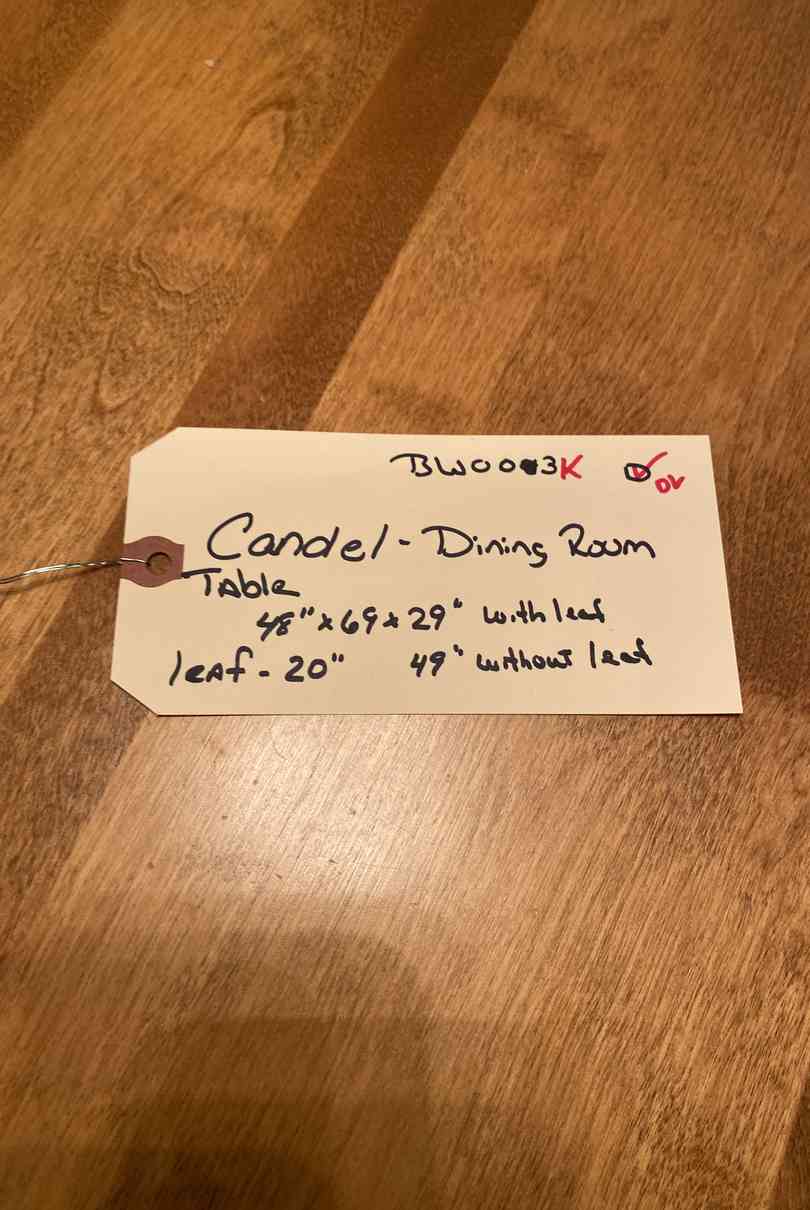 BW003K DV
Candel - Dining Room
Table
48" x 69 x 29" with leaf
leaf - 20" 49" without leaf